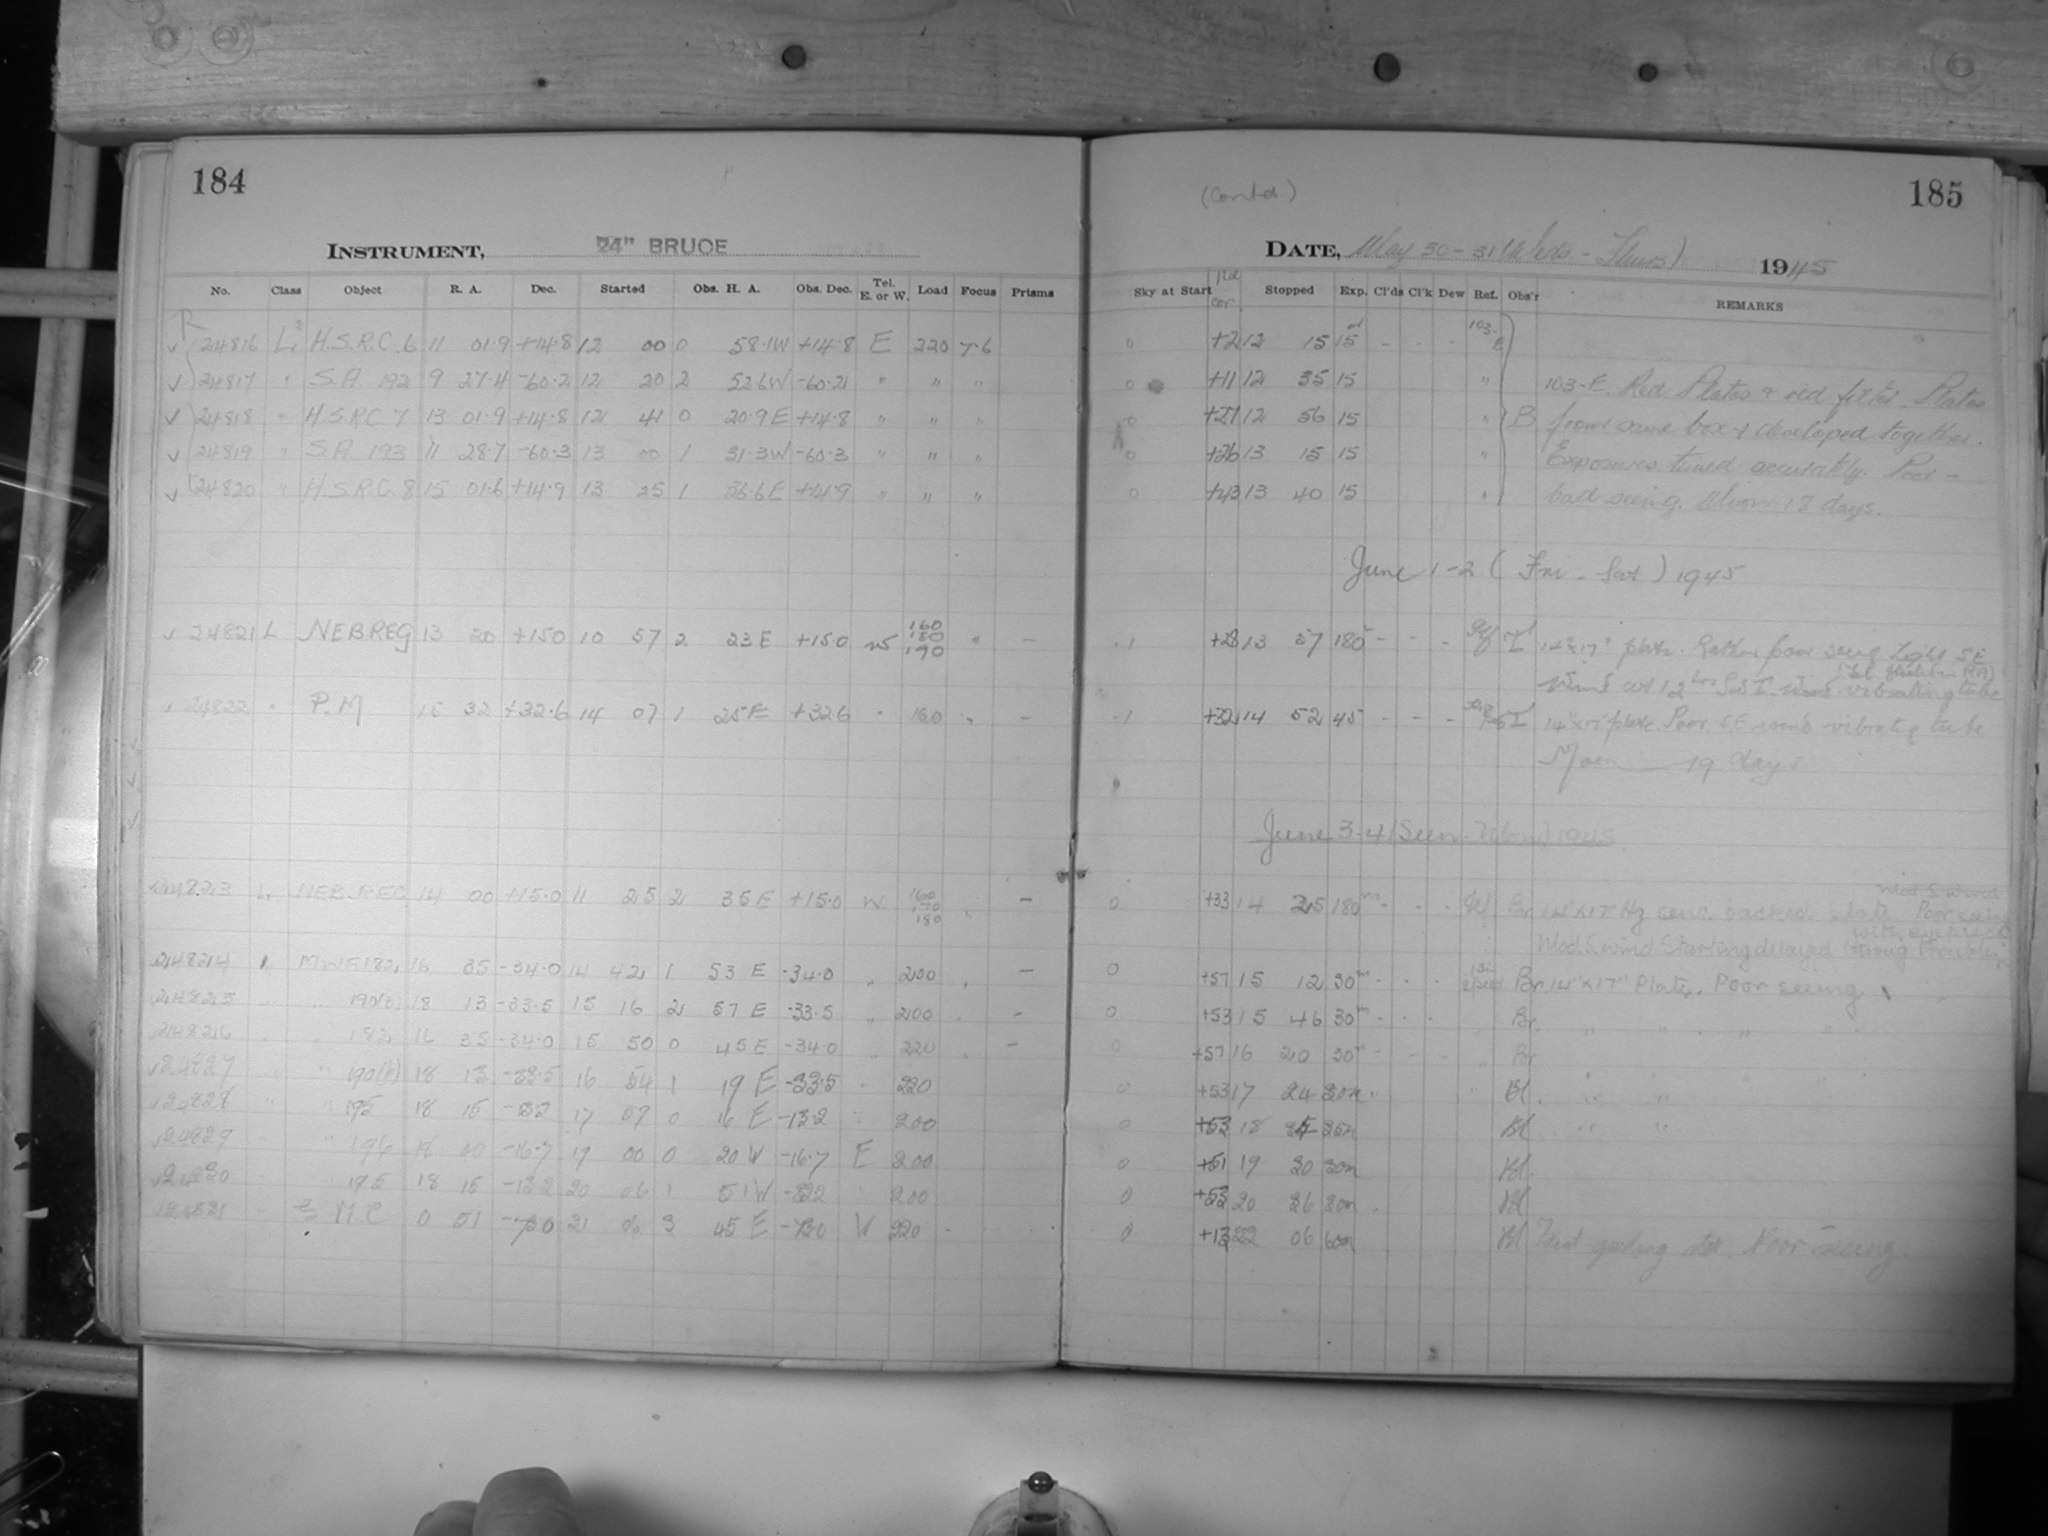 184
INSTRUMENT, 24" BRUCE
No. Class Object R. A. Dec. Started Obs. H. A. Obs. Dec. Tel. E. or W. Load Focus Prisms
24816 L H.S.R.C. 6 11 01.9 +14.8 12 00 0 58.1W +14.8 E 220 7.6
24817 " S.A. 192 9 27.4 -60.2 12 20 2 52.6W -60.2 " " "
24818 " H.S.R.C 7 13 01.9 +14.8 12 41 0 20.9E +14.8 " " "
24819 " S.A. 193 11 28.7 -60.3 13 00 1 31.3W -60.3 " " "
24820 " H.S.R.C. 8 15 01.6 +14.9 13 25 1 36.6E +14.9 " " "
24821 L NEBREG 13 20 +150 10 57 2 23E +150 W 160 180 190 " -
24822 " P.M 15 32 +32.6 14 07 1 25E +326 " 160 " -
24823 L NEB.REG 14 00 +15.0 11 25 2 35E +15.0 W 160 170 180 " -
24824 " MWF182 16 35 -34.0 14 42 1 53 E -34.0 " 200 " -
24825 " " 190(b) 18 13 -33.5 15 16 2 57 E -33.5 " 200 " -
24826 " " 182 16 35 -34.0 15 50 0 45E -34.0 " 220 " -
24827 " " 190(b) 18 13 -33.5 16 54 1 19 E -33.5 " 220
24828 " " 195 18 15 17 0 16 E 200
24829 " " 18 00 -16.7 00 0 20W -16.7 E 200
" " 195 18 15 20 06 1 51W 200
" M C 0 51 -730 21 06 3 45 E -730 W 220
(Contd.)
185
DATE, May 30-31 (Weds - Thurs) 1945
Sky at Start Stopped Exp. Cl'ds Cl'k Dew Ref. Obs'r REMARKS
0 +2 12 15 15 - - - 103-E
0 +11 12 35 15 " 103-E. Red Plates & red filter. Plates
0 +21 12 56 15 " B from same box & developed together.
0 +26 13 15 15 " Exposures timed accurately. Poor -
0 +43 13 40 15 " bad seeing. Moon 18 days.
June 1-2 (Fri - Sat) 1945
1 +28 13 57 180 - - - 14"x17" plate. Rather poor seeing. Light SE
wind vibrating tube
1 +32 14 52 45 - - - 14"x17" plate. Poor. SE wind vibrating tube
Moon 19 days
June 3-4 (Sun - Mon) 1945
Mod. S. wind
0 +33 14 25 180 - - - Br. 14"x17" Hg sens. backed plate. Poor seeing
Mod. S. wind Starting delayed
0 +57 15 12 30m - - - Br. 14"x17" Plate. Poor seeing.
0 +53 15 46 30m - - - Br. " " " "
0 +57 16 20 30m - - - " Br
0 +53 17 24 30m " Bl " "
0 +53 18 Bl " "
0 +51 19 30 30m Bl
0 +53 20 36 30m Bl
0 +13 22 06 60m Bl Faint guiding star. Poor seeing.